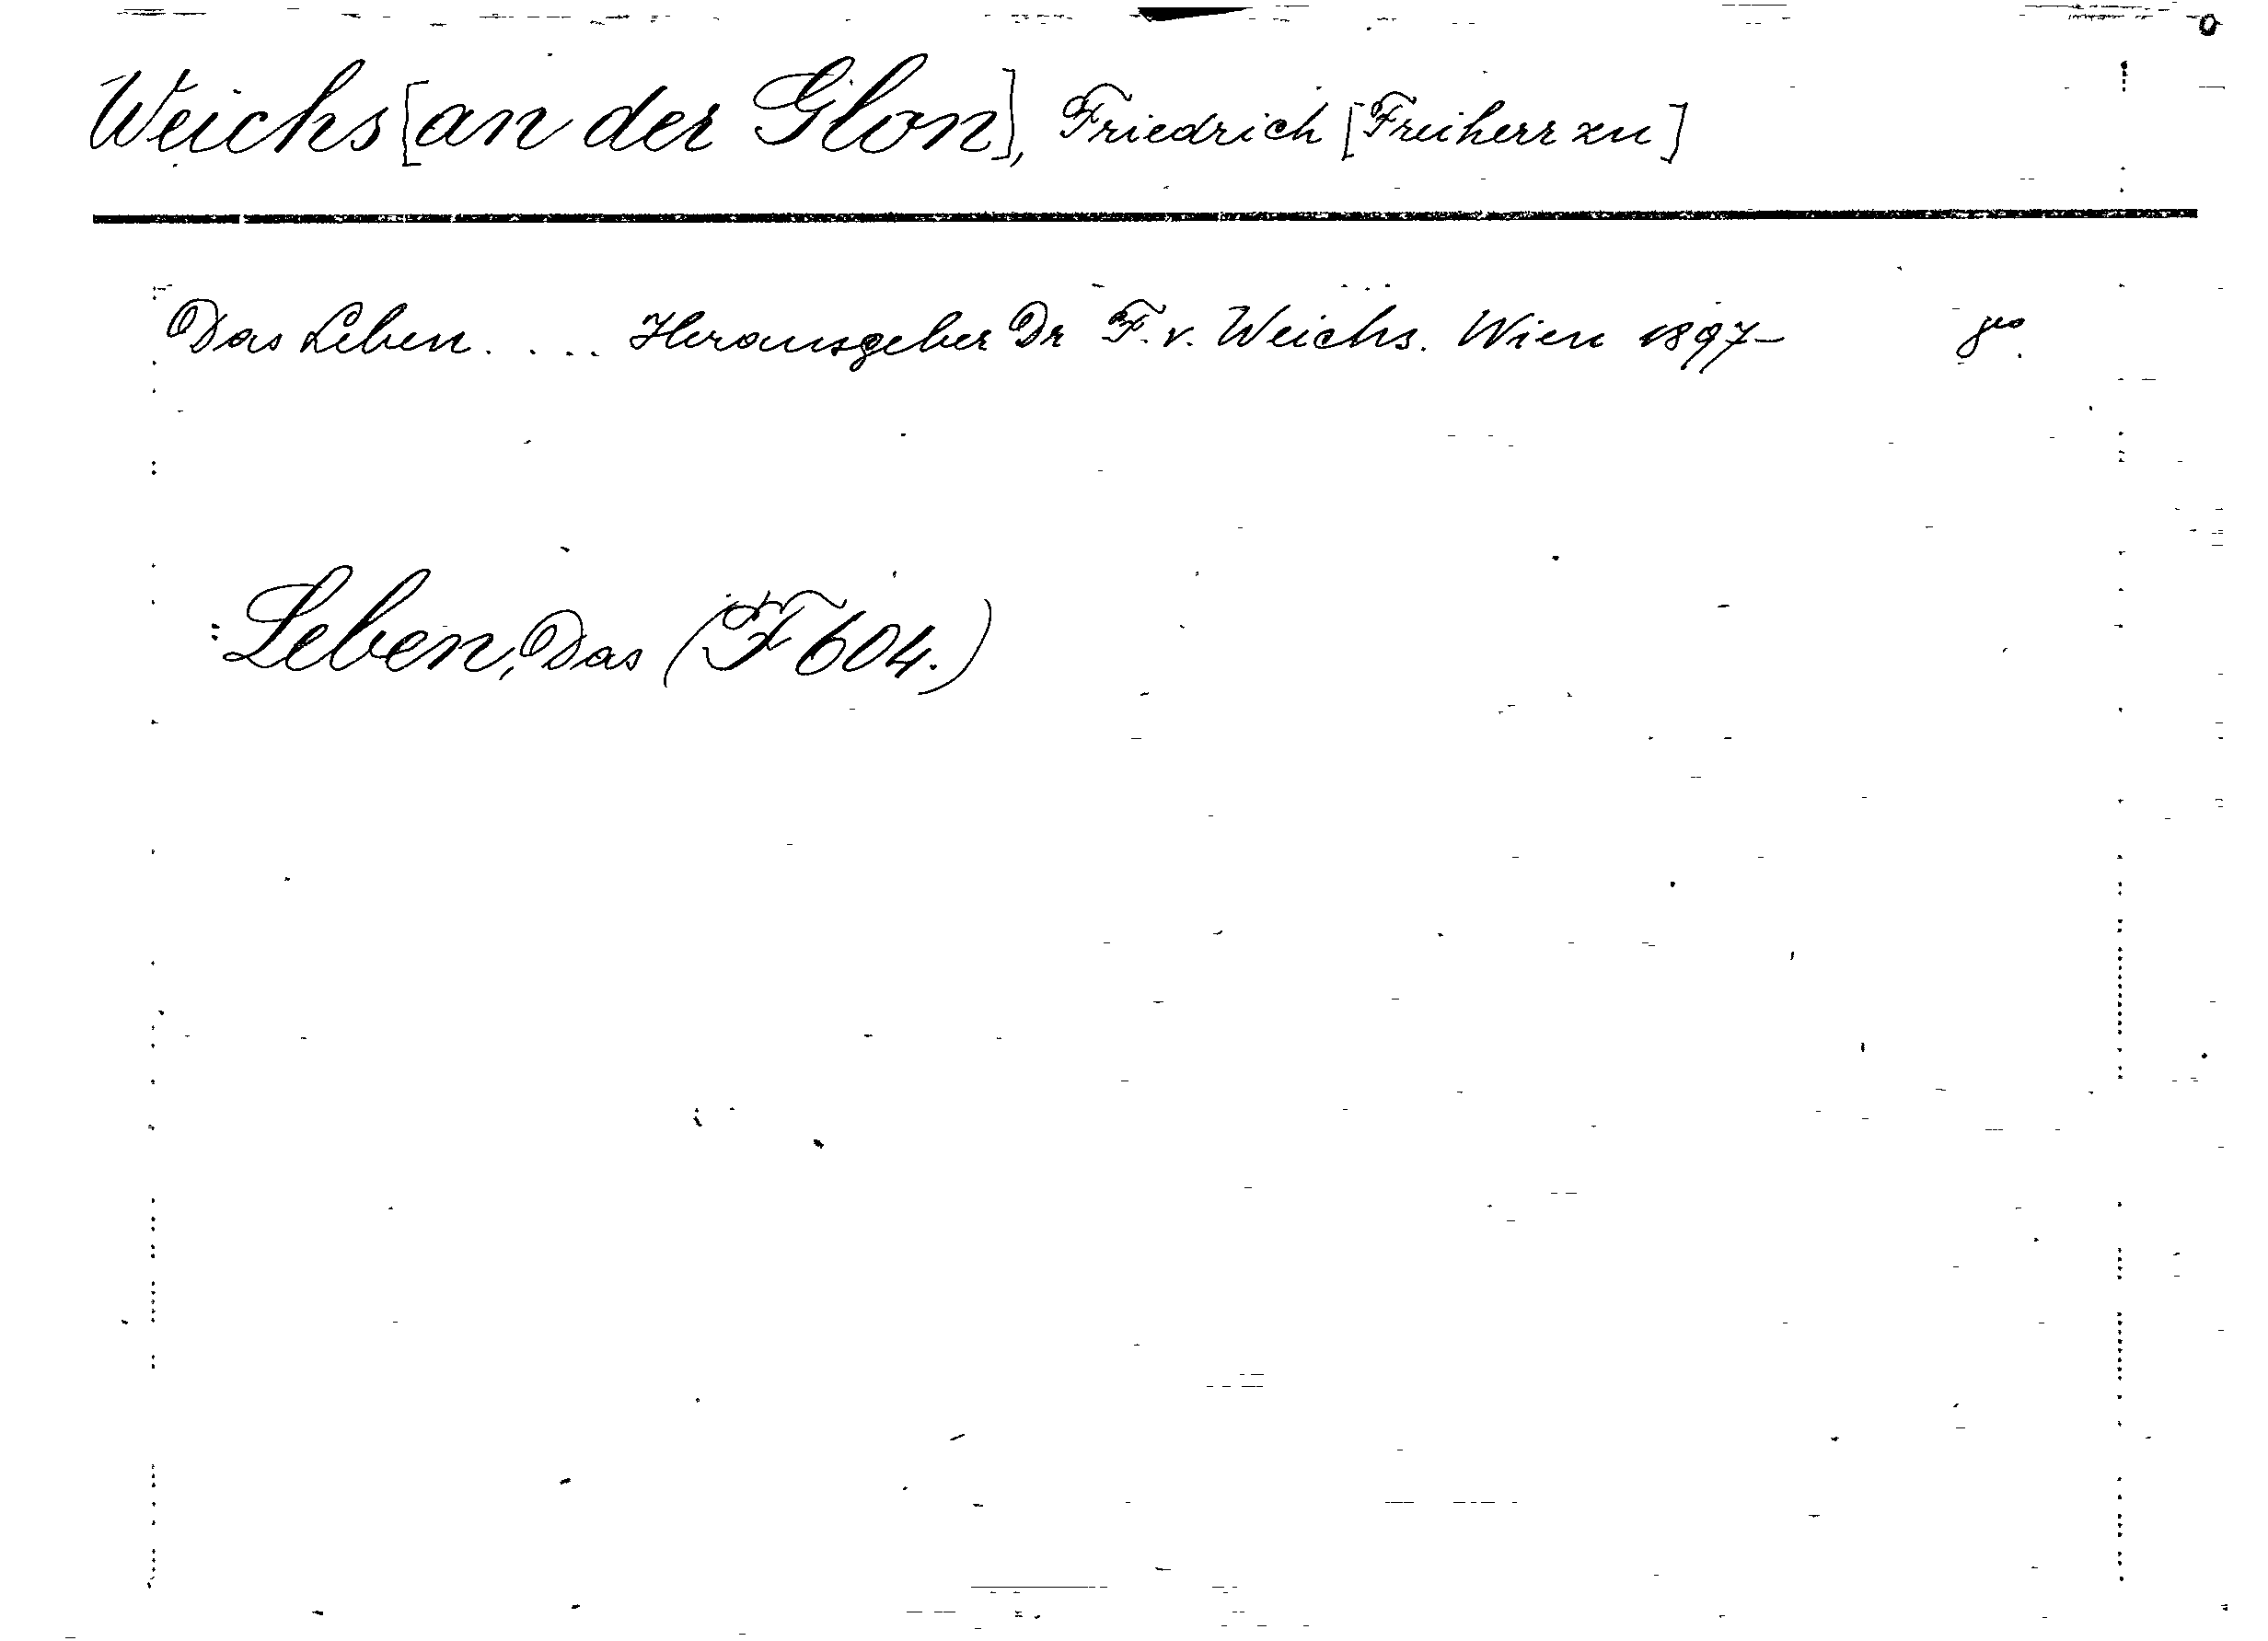 Weichs [an der Glon], Friedrich [Freiherr zu]
Das Leben. . . . . Herausgeber Dr F. v. Weichs. Wien 1897- 8vo.
: Leben, Das (F 604.)